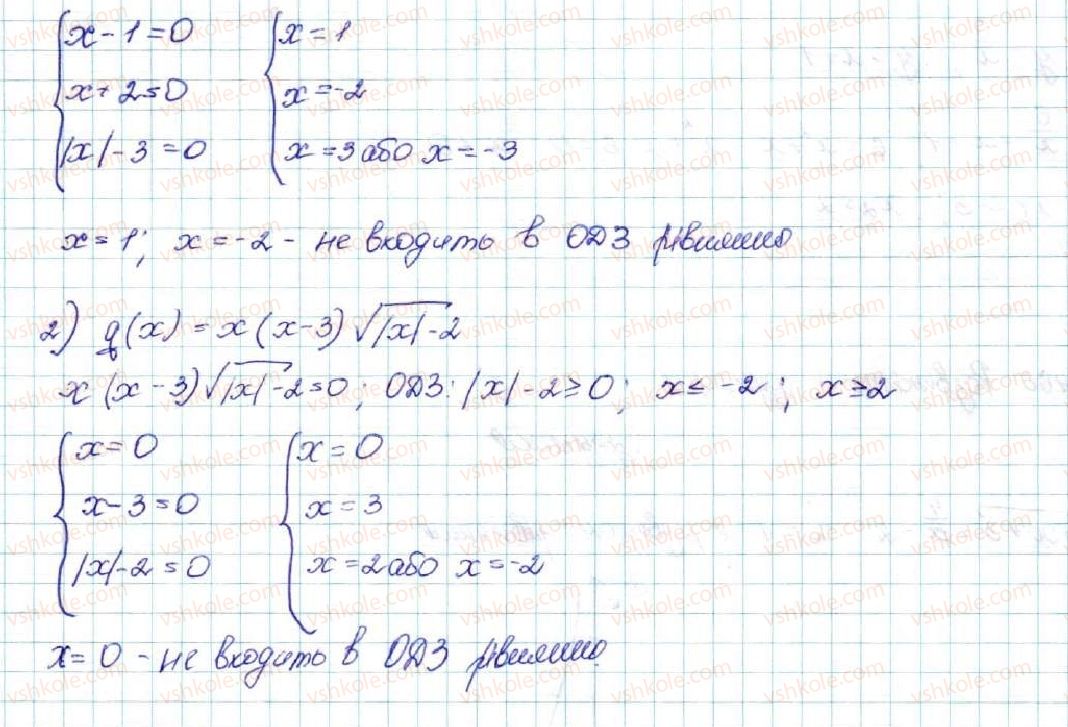 {x-1=0 {x=1
x+2=0 x=-2
|x|-3=0 x=3 або x=-3
x=1; x=-2 - не входить в ОДЗ рівняння
2) g(x)=x(x-3)√|x|-2
x(x-3)√|x|-2=0; ОДЗ: |x|-2≥0; x≤-2; x≥2
{x=0 {x=0
x-3=0 x=3
|x|-2=0 x=2 або x=-2
x=0 - не входить в ОДЗ рівняння
vshkole.com